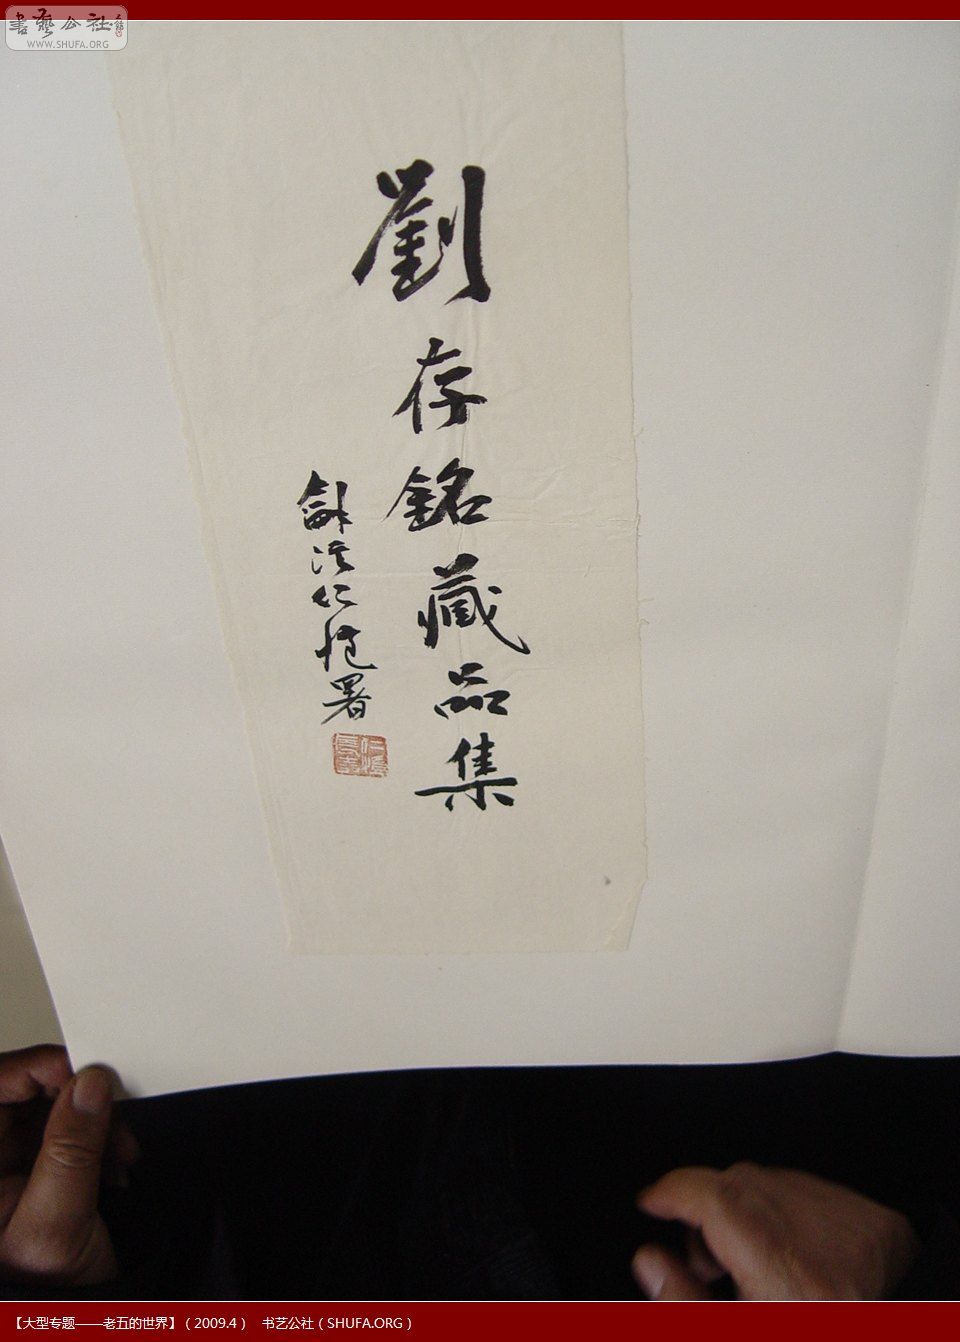 書艺公社
WWW.SHUFA.ORG
劉存銘藏品集
仁愷署
【大型专题——老五的世界】（2009.4） 书艺公社（SHUFA.ORG）